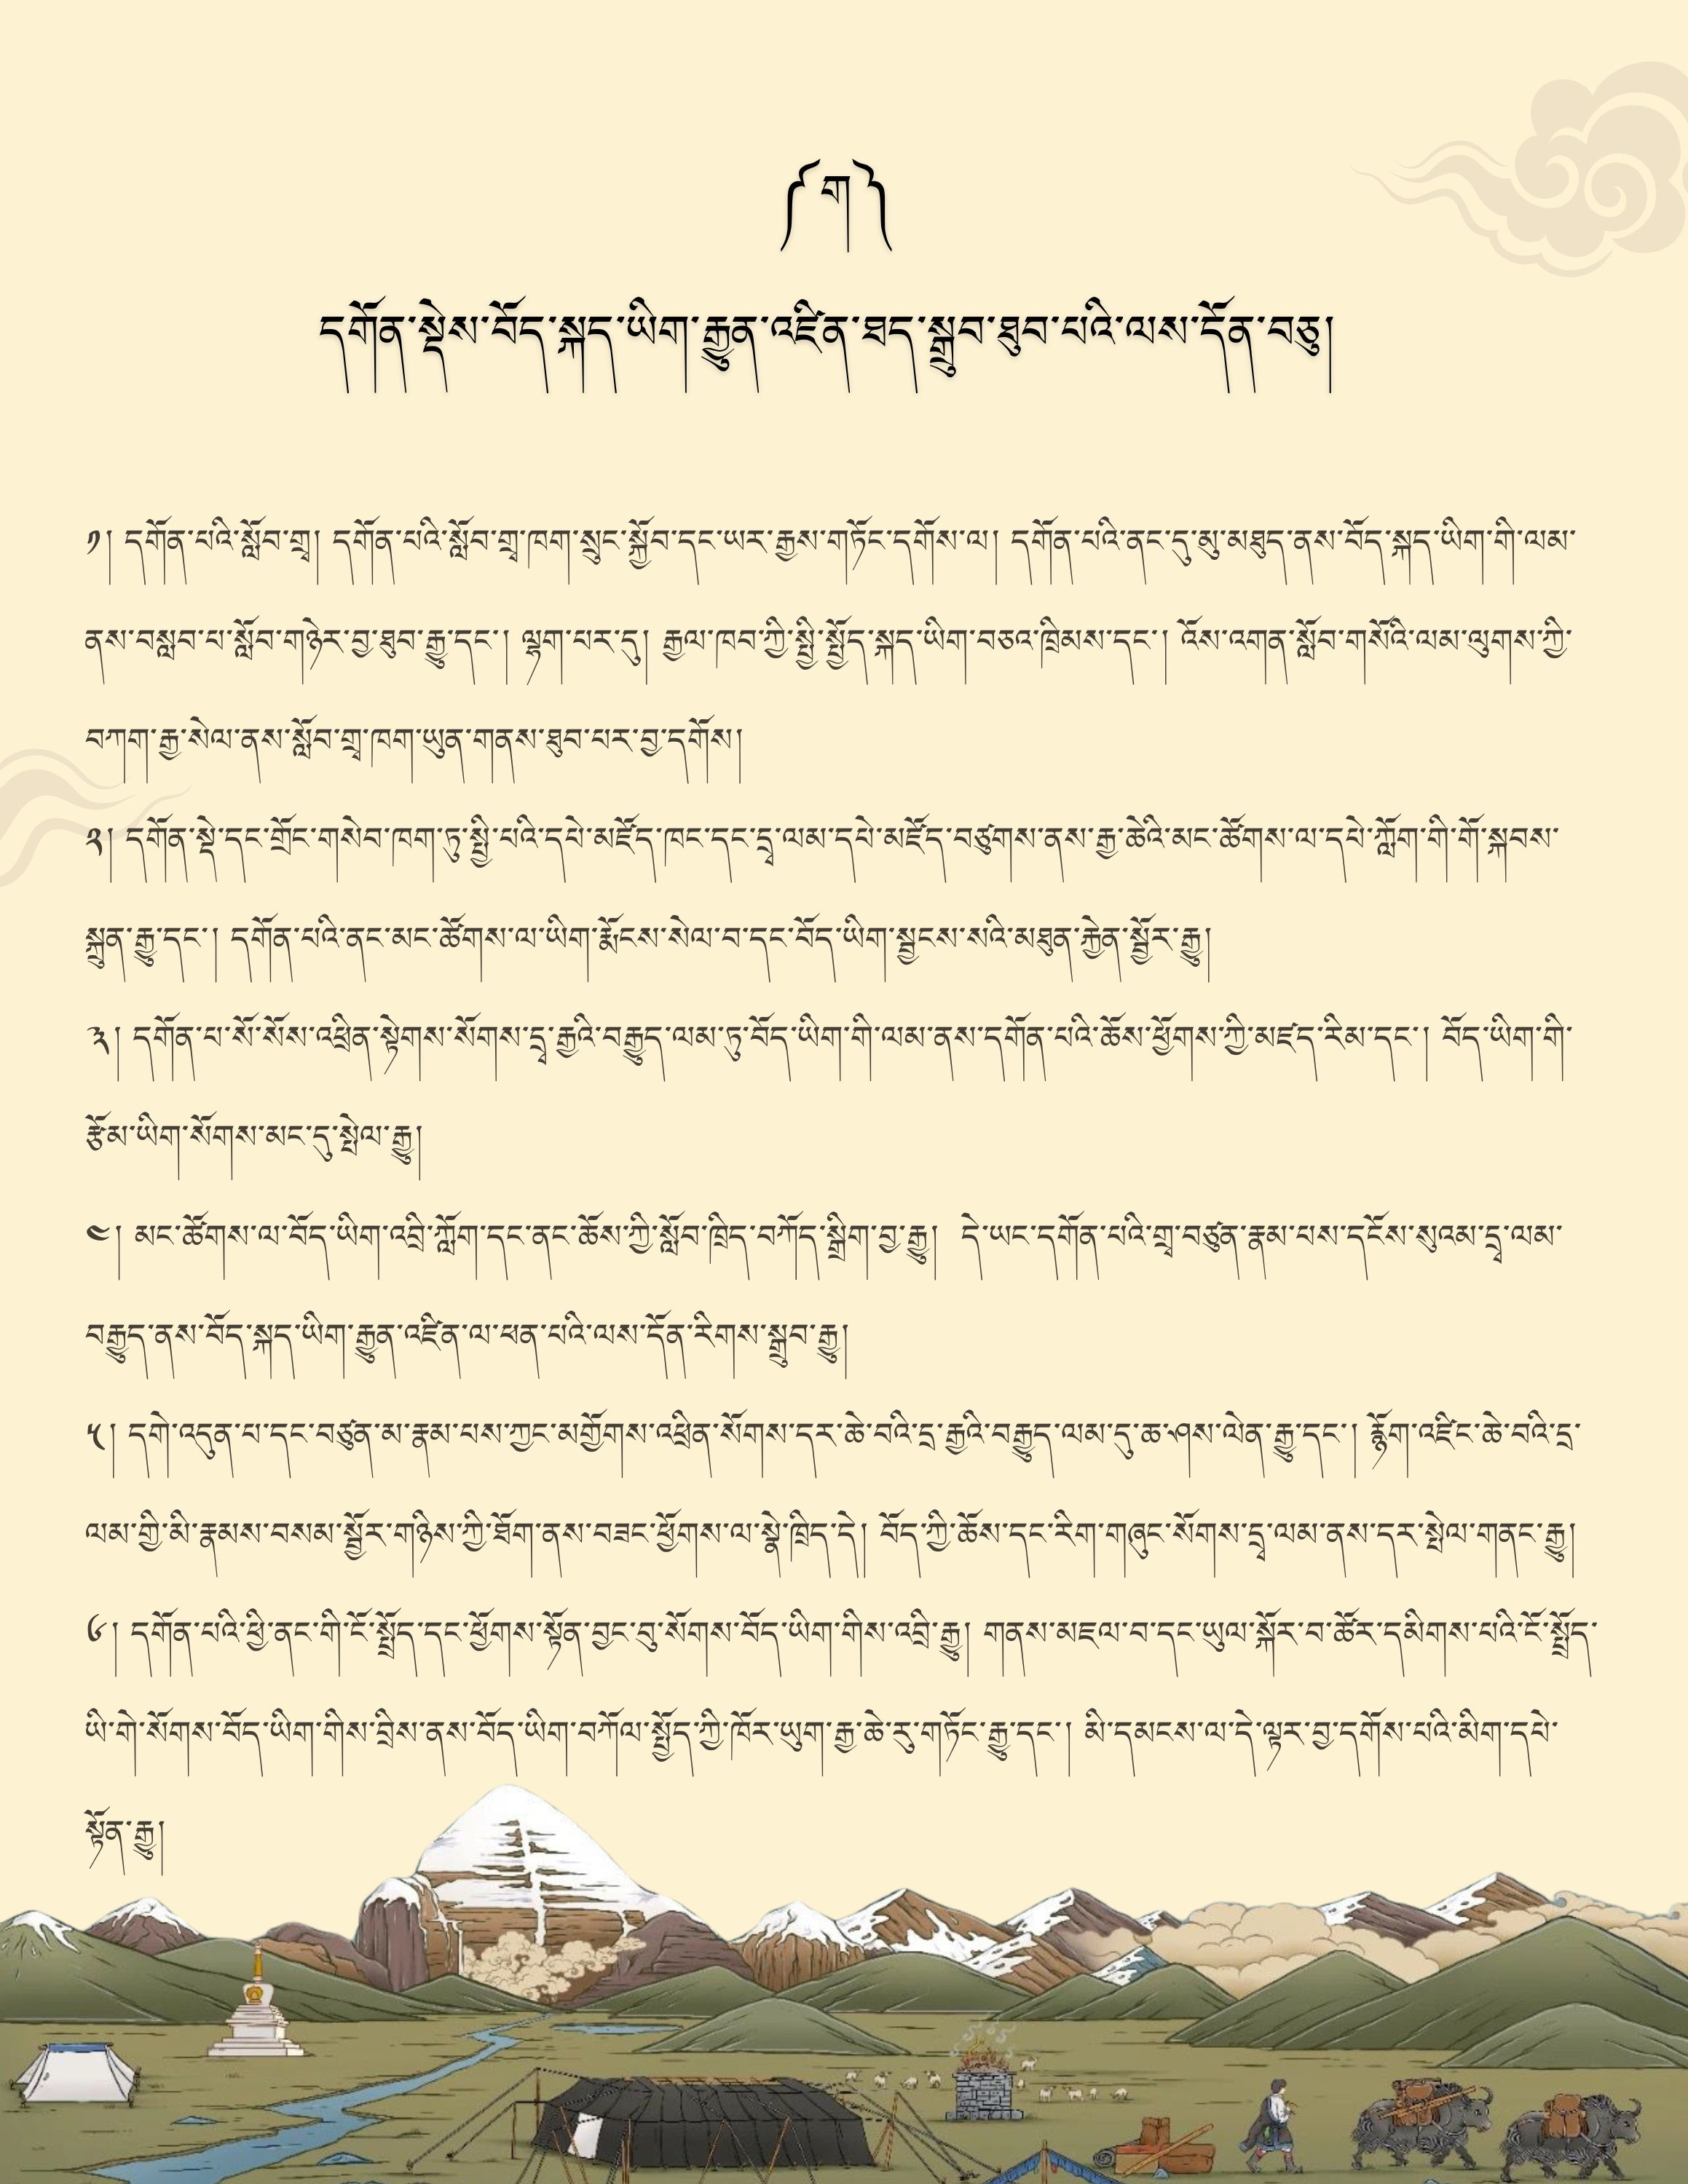 ༼ཀ༽
དགོན་སྡེས་བོད་སྐད་ཡིག་རྒྱུན་འཛིན་ཐད་སྒྲུབ་ཐུབ་པའི་ལས་དོན་བཅུ།
༡། དགོན་པའི་སློབ་གྲྭ། དགོན་པའི་སློབ་གྲྭ་ཁག་སྲུང་སྐྱོབ་དང་ཡར་རྒྱས་གཏོང་དགོས་ལ། དགོན་པའི་ནང་དུ་མུ་མཐུད་ནས་བོད་སྐད་ཡིག་གི་ལམ་
ནས་བསླབ་པ་སློབ་གཉེར་བྱ་ཐུབ་རྒྱུ་དང་། ལྷག་པར་དུ། རྒྱལ་ཁབ་ཀྱི་སྤྱི་སྤྱོད་སྐད་ཡིག་བཅའ་ཁྲིམས་དང་། འོས་འགན་སློབ་གསོའི་ལམ་ལུགས་ཀྱི་
བཀག་རྒྱ་སེལ་ནས་སློབ་གྲྭ་ཁག་ཡུན་གནས་ཐུབ་པར་བྱ་དགོས།
༢། དགོན་སྡེ་དང་གྲོང་གསེབ་ཁག་ཏུ་སྤྱི་པའི་དཔེ་མཛོད་ཁང་དང་དྲྭ་ལམ་དཔེ་མཛོད་བཙུགས་ནས་རྒྱ་ཆེའི་མང་ཚོགས་ལ་དཔེ་ཀློག་གི་གོ་སྐབས་
སྐྲུན་རྒྱུ་དང་། དགོན་པའི་ནང་མང་ཚོགས་ལ་ཡིག་རྨོངས་སེལ་བ་དང་བོད་ཡིག་སྦྱངས་སའི་མཐུན་རྐྱེན་སྦྱོར་རྒྱུ།
༣། དགོན་པ་སོ་སོས་འཕྲིན་སྟེགས་སོགས་དྲྭ་རྒྱའི་བརྒྱུད་ལམ་ཏུ་བོད་ཡིག་གི་ལམ་ནས་དགོན་པའི་ཆོས་ཕྱོགས་ཀྱི་མཛད་རིམ་དང་། བོད་ཡིག་གི་
རྩོམ་ཡིག་སོགས་མང་དུ་སྤེལ་རྒྱུ།
༤། མང་ཚོགས་ལ་བོད་ཡིག་འབྲི་ཀློག་དང་ནང་ཆོས་ཀྱི་སློབ་ཁྲིད་བཀོད་སྒྲིག་བྱ་རྒྱུ། དེ་ཡང་དགོན་པའི་གྲྭ་བཙུན་རྣམ་པས་དངོས་སུའམ་དྲྭ་ལམ་
བརྒྱུད་ནས་བོད་སྐད་ཡིག་རྒྱུན་འཛིན་ལ་ཕན་པའི་ལས་དོན་རིགས་སྒྲུབ་རྒྱུ།
༥། དགེ་འདུན་པ་དང་བཙུན་མ་རྣམ་པས་ཀྱང་མགྱོགས་འཕྲིན་སོགས་དར་ཆེ་བའི་དྲ་རྒྱའི་བརྒྱུད་ལམ་དུ་ཆ་ཤས་ལེན་རྒྱུ་དང་། རྙོག་འཛིང་ཆེ་བའི་དྲ་
ལམ་གྱི་མི་རྣམས་བསམ་སྦྱོར་གཉིས་ཀྱི་ཐོག་ནས་བཟང་ཕྱོགས་ལ་སྣེ་ཁྲིད་དེ། བོད་ཀྱི་ཆོས་དང་རིག་གཞུང་སོགས་དྲྭ་ལམ་ནས་དར་སྤེལ་གནང་རྒྱུ།
༦། དགོན་པའི་ཕྱི་ནང་གི་ངོ་སྤྲོད་དང་ཕྱོགས་སྟོན་བྱང་བུ་སོགས་བོད་ཡིག་གིས་འབྲི་རྒྱུ། གནས་མཇལ་བ་དང་ཡུལ་སྐོར་བ་ཚོར་དམིགས་པའི་ངོ་སྤྲོད་
ཡི་གེ་སོགས་བོད་ཡིག་གིས་བྲིས་ནས་བོད་ཡིག་བཀོལ་སྤྱོད་ཀྱི་ཁོར་ཡུག་རྒྱ་ཆེ་རུ་གཏོང་རྒྱུ་དང་། མི་དམངས་ལ་དེ་ལྟར་བྱ་དགོས་པའི་མིག་དཔེ་
སྟོན་རྒྱུ།